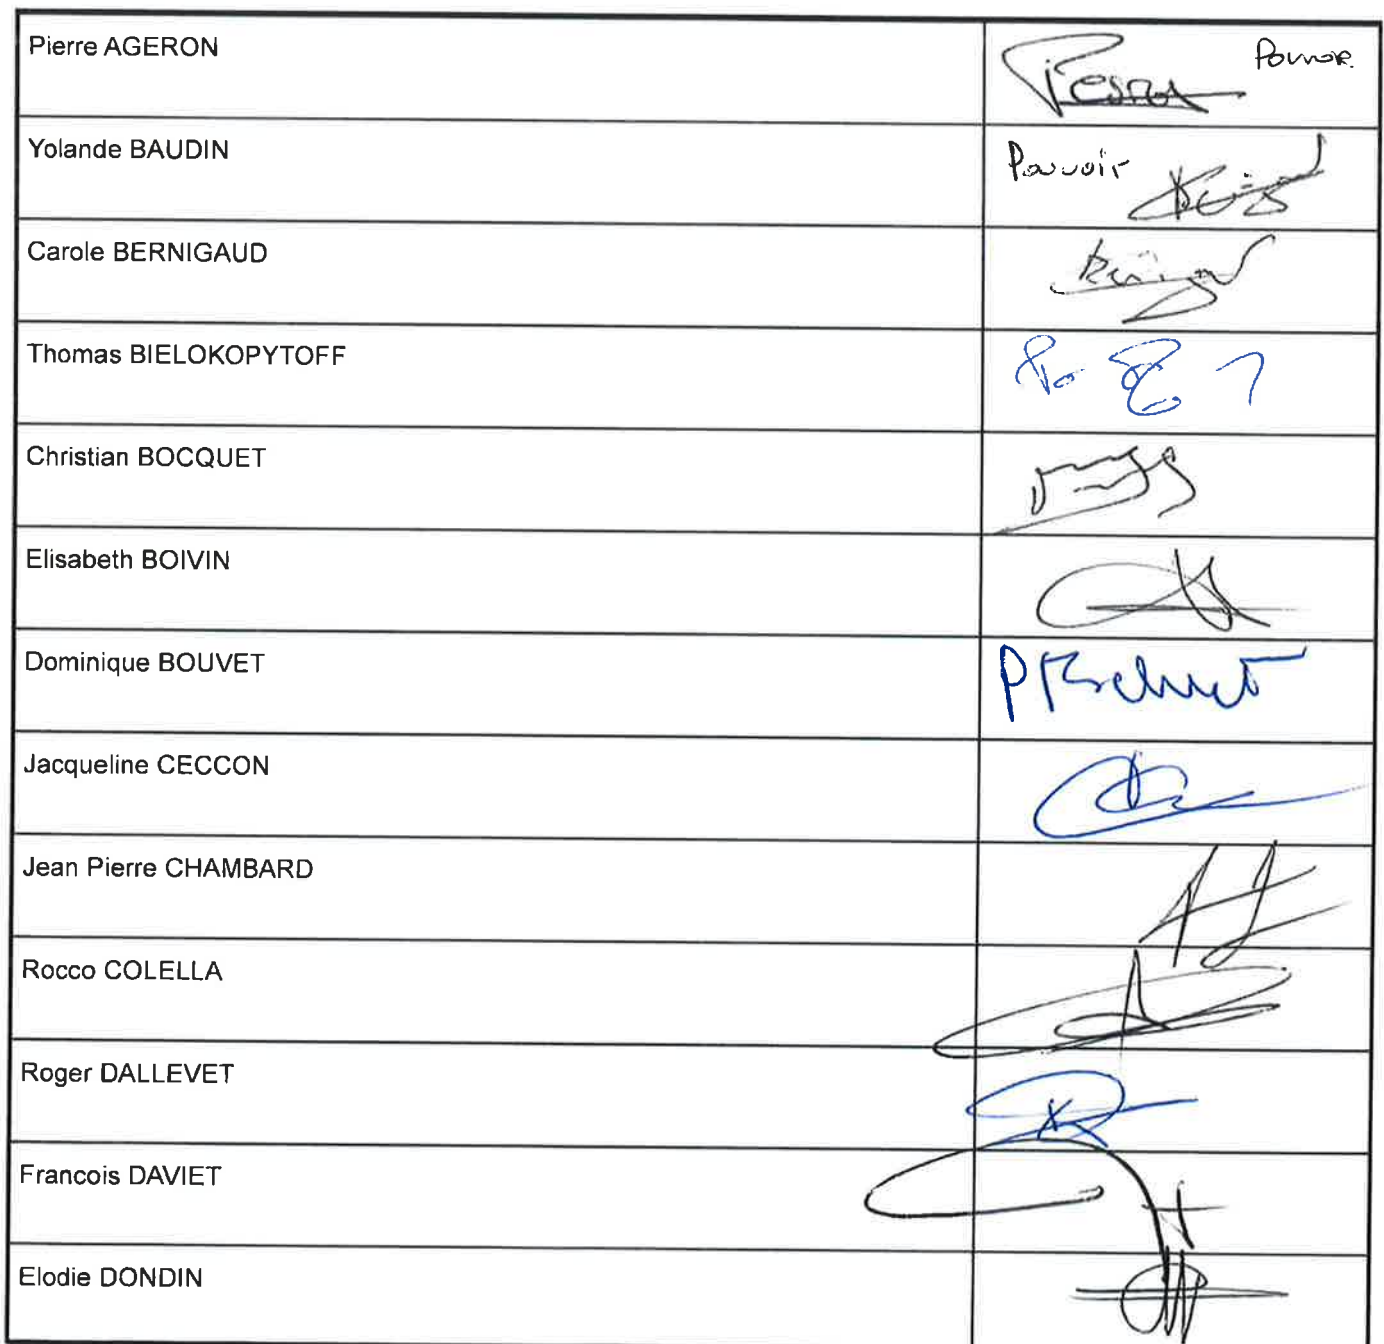 Pierre AGERON
Pouvoir
Yolande BAUDIN
Pouvoir
Carole BERNIGAUD
Thomas BIELOKOPYTOFF
Christian BOCQUET
Elisabeth BOIVIN
Dominique BOUVET
Jacqueline CECCON
Jean Pierre CHAMBARD
Rocco COLELLA
Roger DALLEVET
Francois DAVIET
Elodie DONDIN